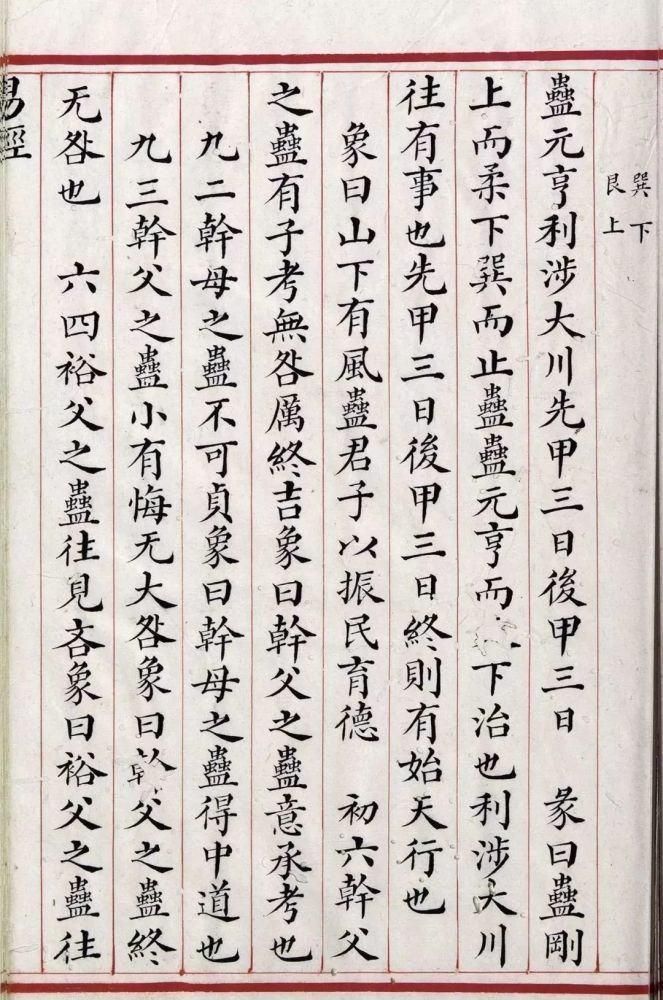 巽下
艮上
蠱元亨利涉大川先甲三日後甲三日 彖曰蠱剛
上而柔下巽而止蠱蠱元亨而下治也利涉大川
往有事也先甲三日後甲三日終則有始天行也
象曰山下有風蠱君子以振民育德 初六幹父
之蠱有子考無咎厲終吉象曰幹父之蠱意承考也
九二幹母之蠱不可貞象曰幹母之蠱得中道也
九三幹父之蠱小有悔无大咎象曰幹父之蠱終
无咎也 六四裕父之蠱往見吝象曰裕父之蠱往
易經